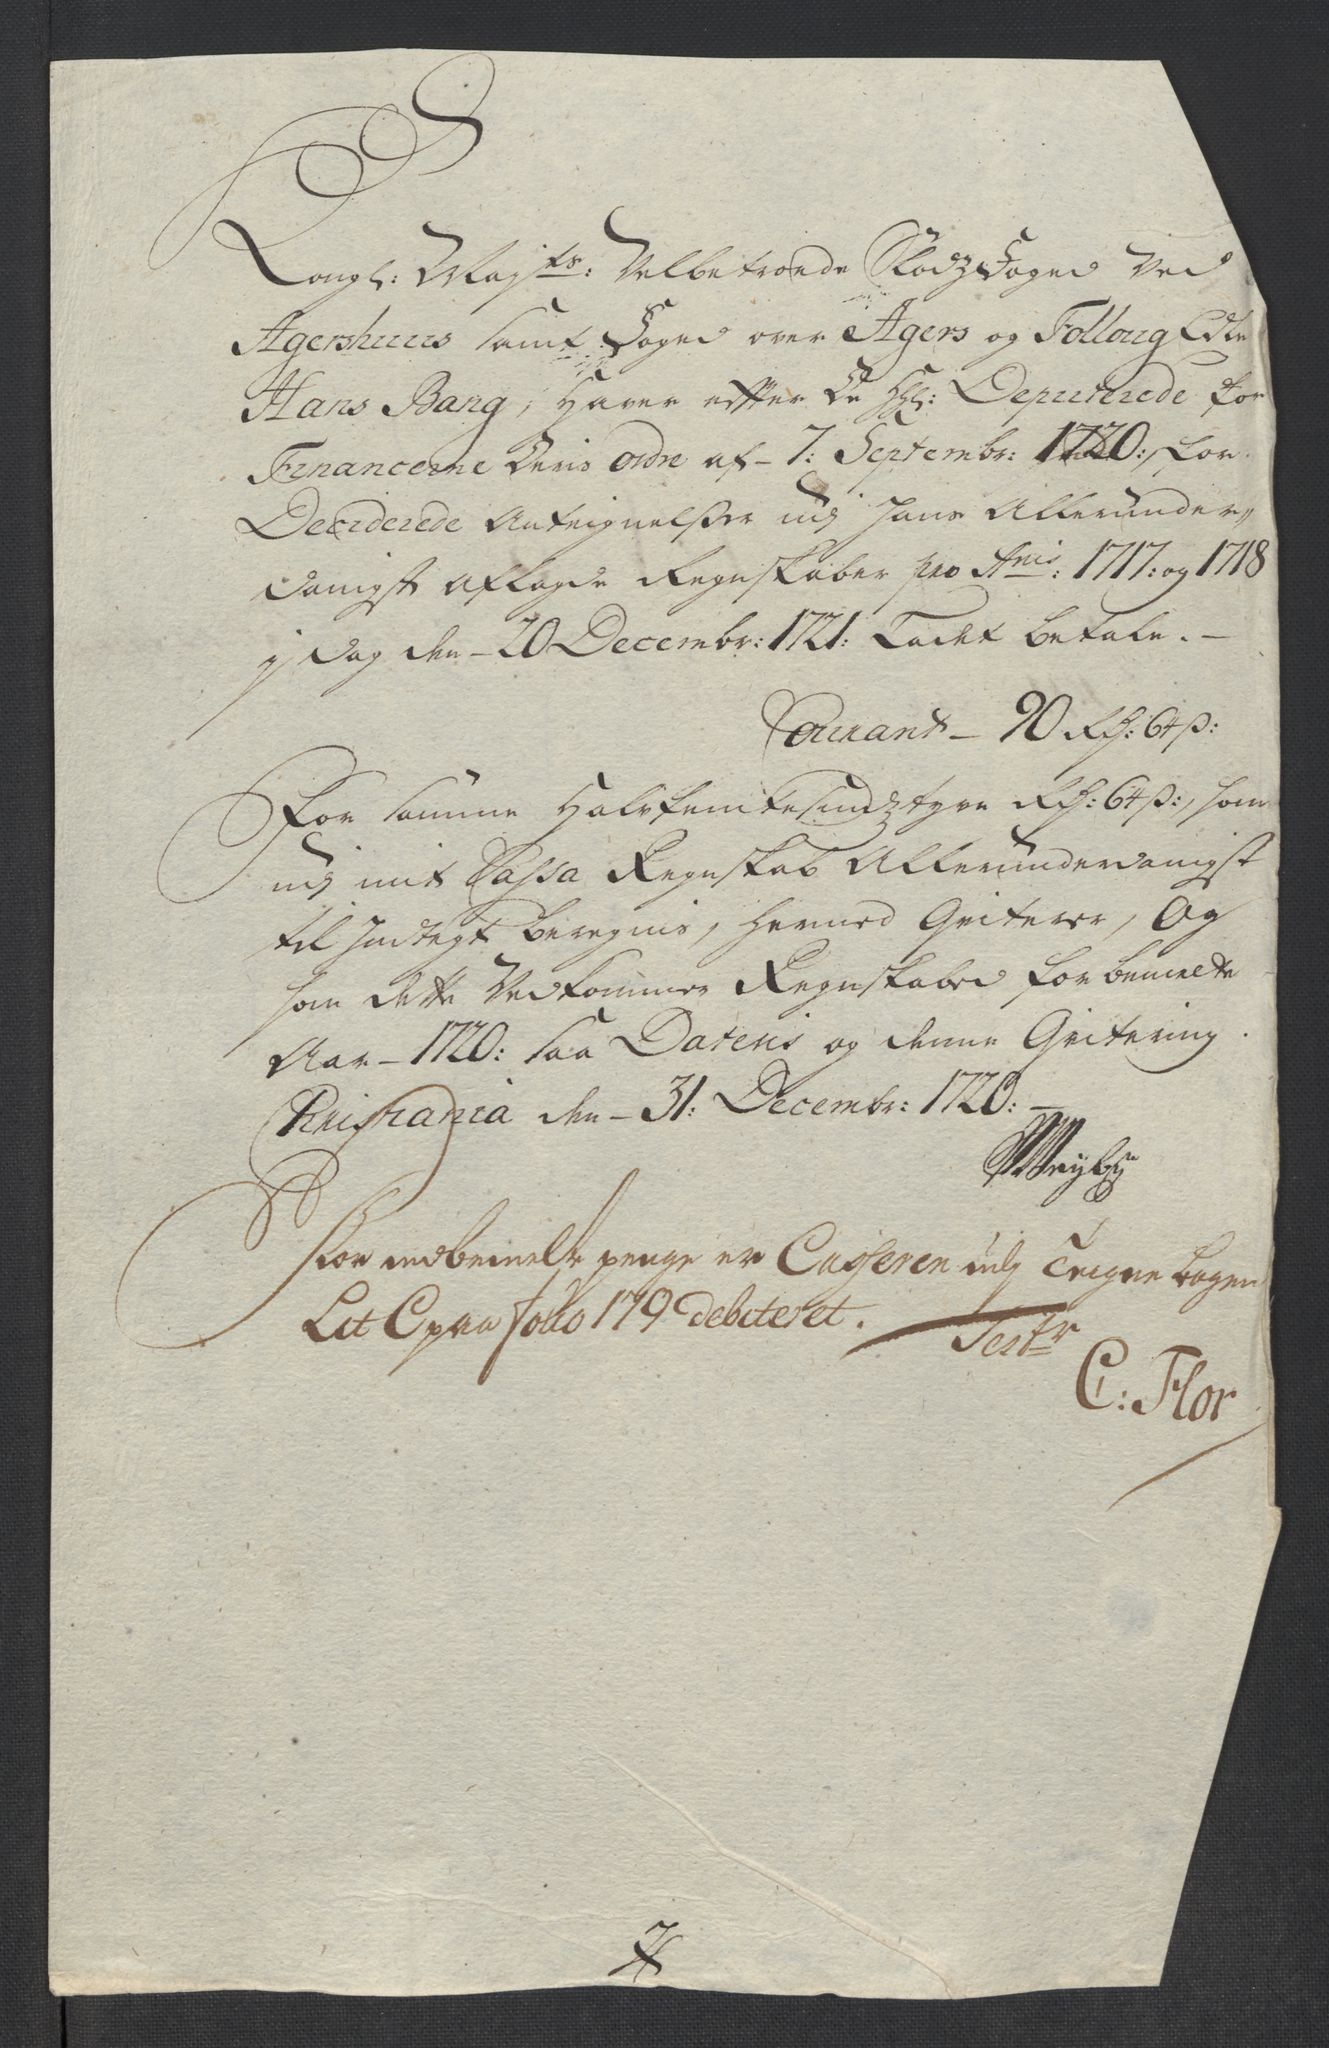 Kongl: Maÿts: Velbetroede Slodz Foged Ved
Agershuus samt Foged over Agers og Folloug Edle
Hans Bang, Haver effter De Hhl: Deputerede for
Financerne Deris Ordre af - 7: Septembr: 1720:, for
Deciderede Antegnelsser udj hans Allerunder,,
danigst aflagde Regnskaber pro Anis: 1717: og 1718
j dag den - 20 Decembr: 1721: Ladet betale. -
Courant - 90 Rd: 64 ß:
For samme Halvfemtesindztyve Rd: 64 ß:, som
udj mit Cassa Regnskab Allerunderdanigst
til Indtegt beregnis, hermed Qviterer, Og
som dette Vedkommer Regnskabed for bemelte
Aar - 1720: saa Dateris og denne Qvitering
Christiania den - 31: Decembr: 1720: -
For indbemelte penge er Casseren udj Teigne bogen
Lit C paa Folio 179 debiteret.
Test:r
C: Flor